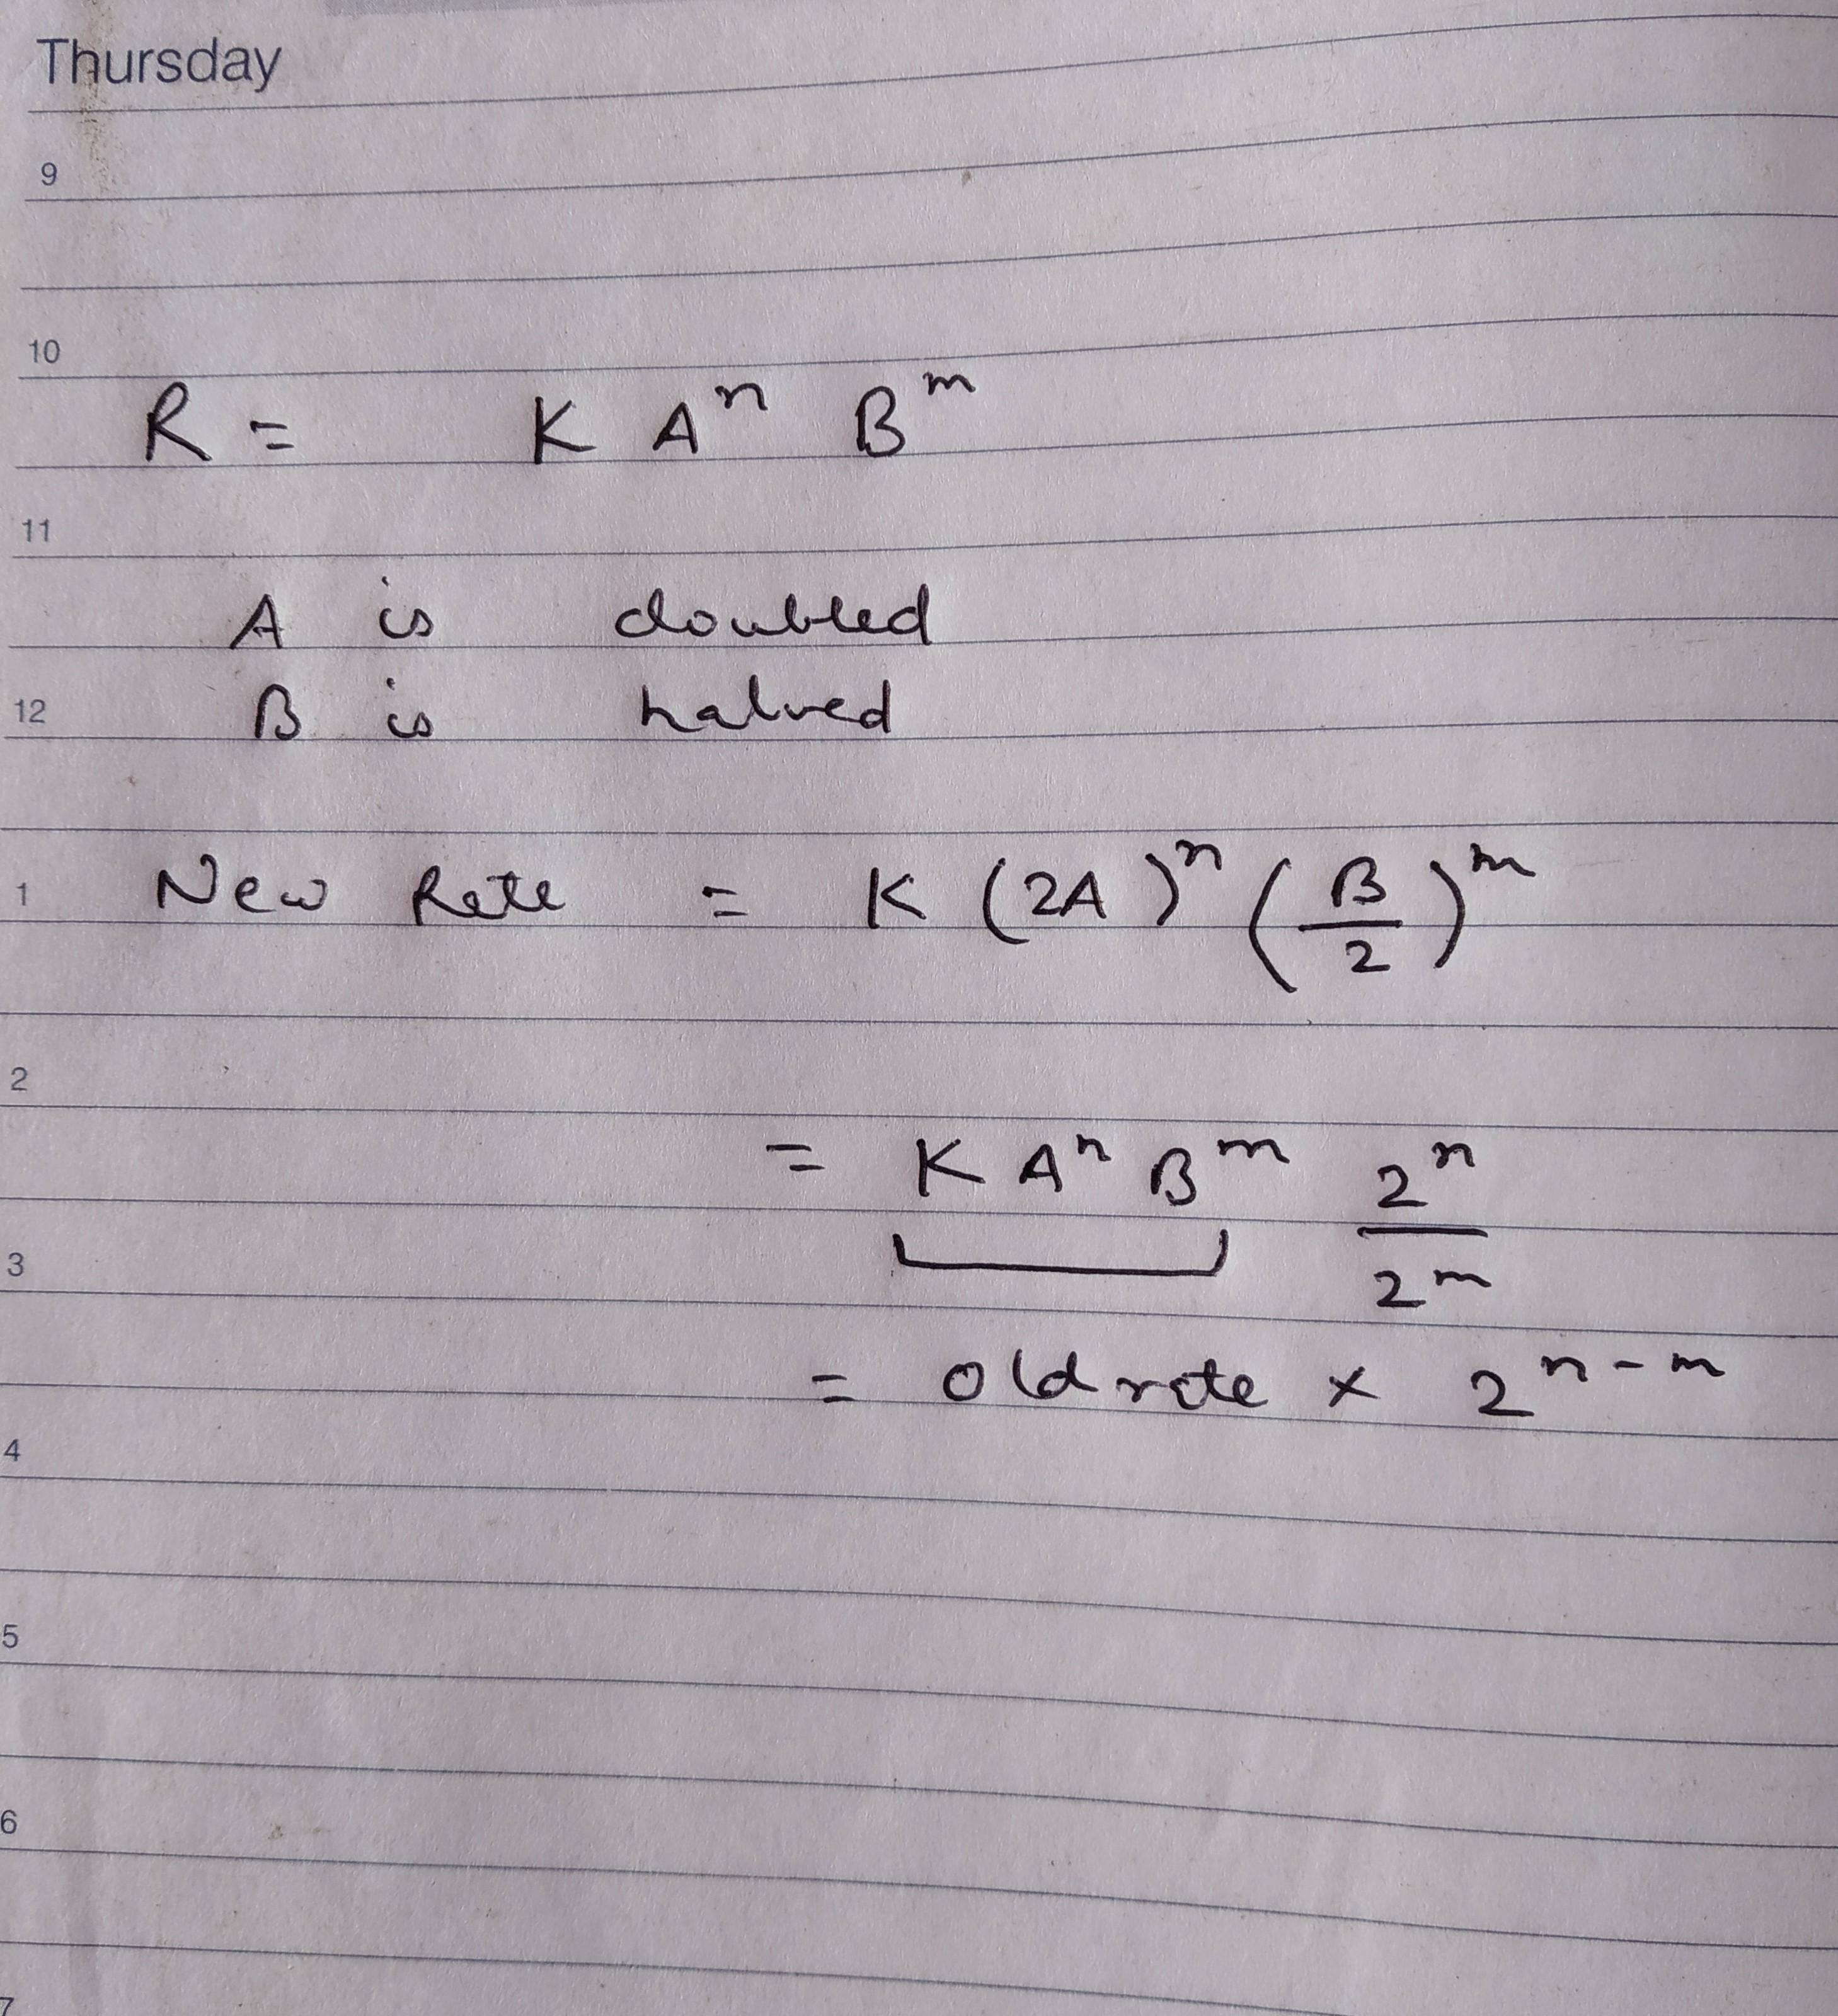 Thursday
9
10
R = K Aⁿ Bᵐ
11
A is doubled
12 B is halved
1 New Rate = K (2A)ⁿ (B/2)ᵐ
2
= K Aⁿ Bᵐ 2ⁿ/2ᵐ
3
= old rate × 2ⁿ⁻ᵐ
4
5
6
7